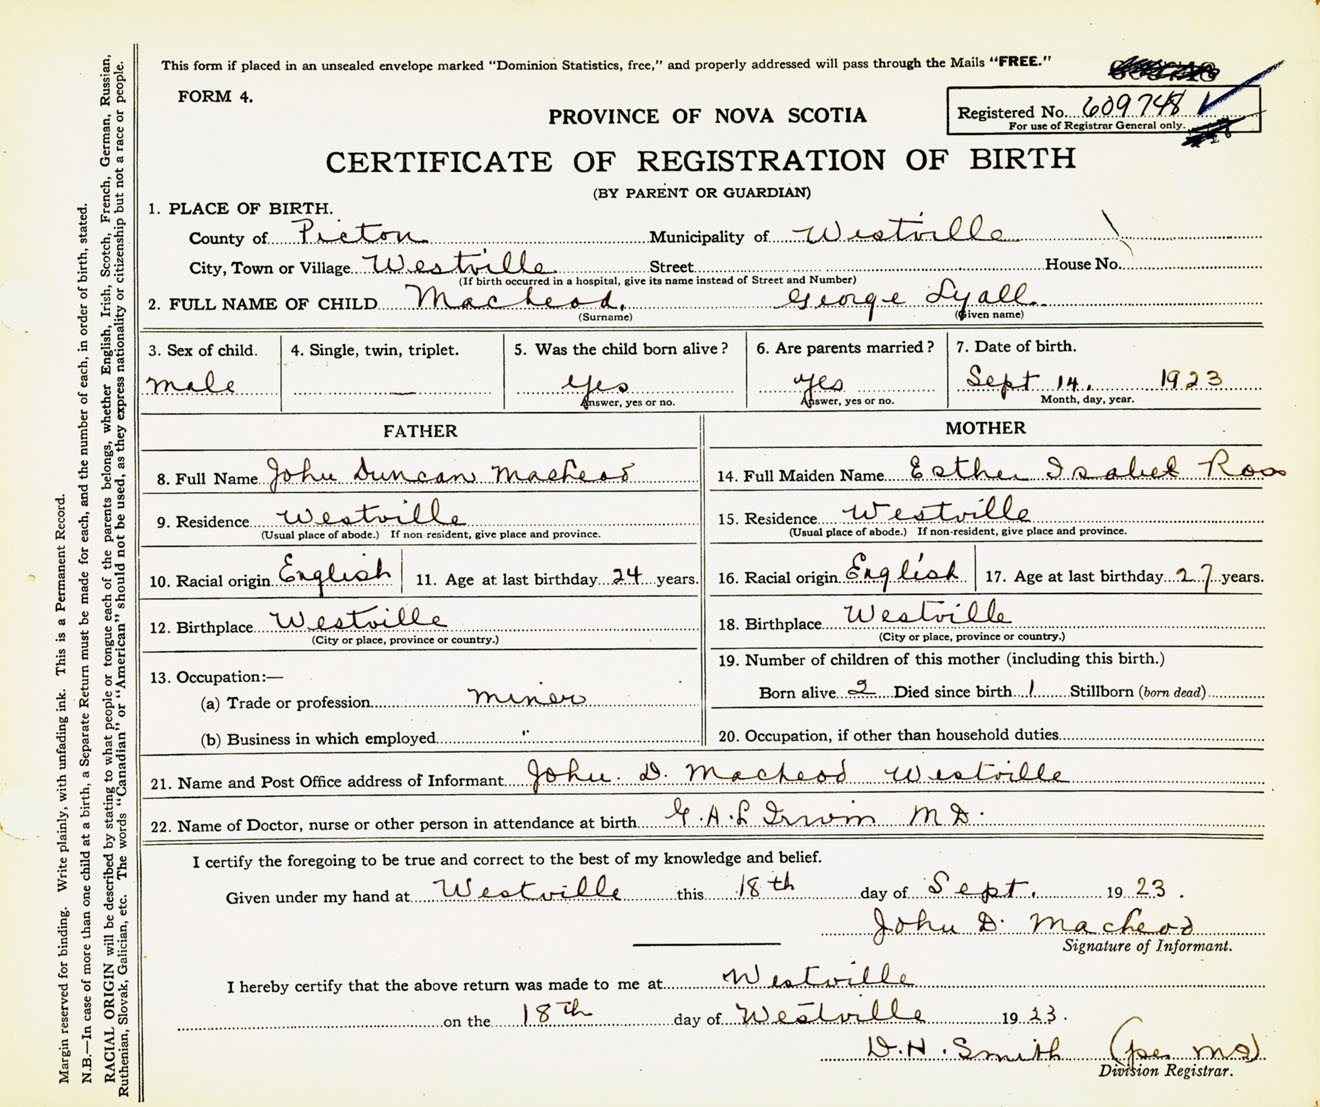 This form if placed in an unsealed envelope marked "Dominion Statistics, free," and properly addressed will pass through the Mails "FREE."
FORM 4.
PROVINCE OF NOVA SCOTIA
Registered No. 609748
For use of Registrar General only.
CERTIFICATE OF REGISTRATION OF BIRTH
(BY PARENT OR GUARDIAN)
1. PLACE OF BIRTH.
County of Pictou Municipality of Westville
City, Town or Village Westville Street House No.
(If birth occurred in a hospital, give its name instead of Street and Number)
2. FULL NAME OF CHILD MacLeod. George Lyall.
(Surname) (Given name)
3. Sex of child. 4. Single, twin, triplet. 5. Was the child born alive? 6. Are parents married? 7. Date of birth.
male — yes yes Sept 14, 1923
Answer, yes or no. Answer, yes or no. Month, day, year.
FATHER
8. Full Name John Duncan MacLeod
9. Residence Westville
(Usual place of abode.) If non-resident, give place and province.
10. Racial origin English 11. Age at last birthday 24 years.
12. Birthplace Westville
(City or place, province or country.)
13. Occupation:—
(a) Trade or profession miner
(b) Business in which employed "
MOTHER
14. Full Maiden Name Esther Isabel Ross
15. Residence Westville
(Usual place of abode.) If non-resident, give place and province.
16. Racial origin English 17. Age at last birthday 27 years.
18. Birthplace Westville
(City or place, province or country.)
19. Number of children of this mother (including this birth.)
Born alive 2 Died since birth 1 Stillborn (born dead)
20. Occupation, if other than household duties
21. Name and Post Office address of Informant John. D. MacLeod Westville
22. Name of Doctor, nurse or other person in attendance at birth G.A.L Irwin M D.
I certify the foregoing to be true and correct to the best of my knowledge and belief.
Given under my hand at Westville this 18th day of Sept. 1923.
John D. MacLeod
Signature of Informant.
I hereby certify that the above return was made to me at Westville
on the 18th day of Westville 1923.
D.H. Smith (per MS)
Division Registrar.
Margin reserved for binding. Write plainly, with unfading ink. This is a Permanent Record.
N.B.—In case of more than one child at a birth, a Separate Return must be made for each, and the number of each, in order of birth, stated.
RACIAL ORIGIN will be described by stating to what people or tongue each of the parents belongs, whether English, Irish, Scotch, French, German, Russian,
Ruthenian, Slovak, Galician, etc. The words "Canadian" or "American" should not be used, as they express nationality or citizenship but not a race or people.